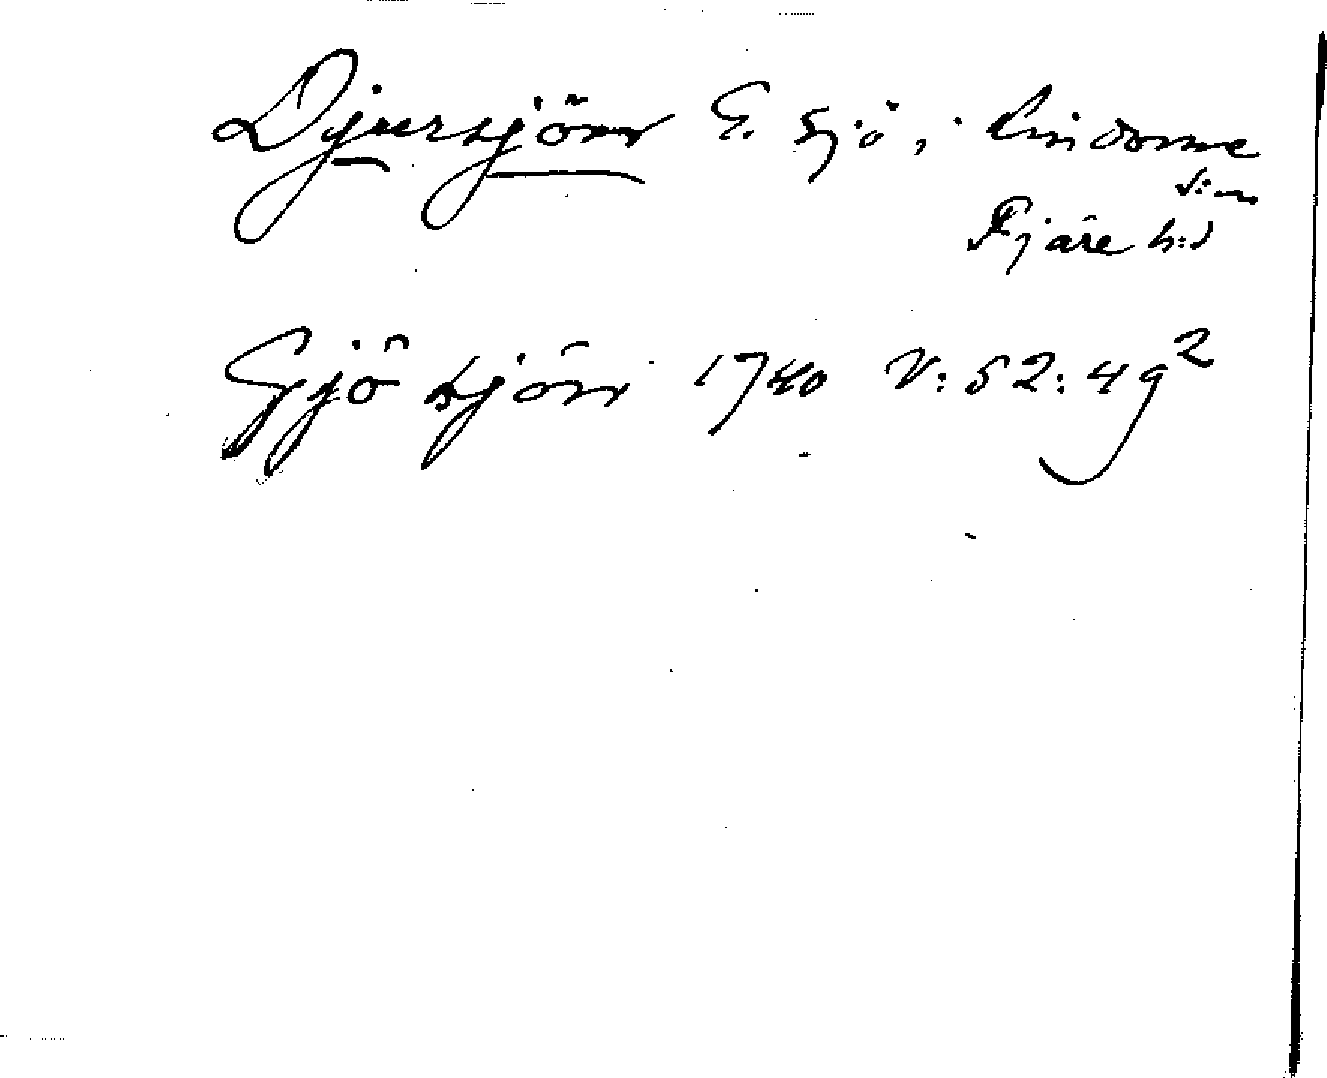 Djursjön E. sjö, i Lindome
s:n
Fjäre h:d
Gjö sjön 1740 V:52:49²